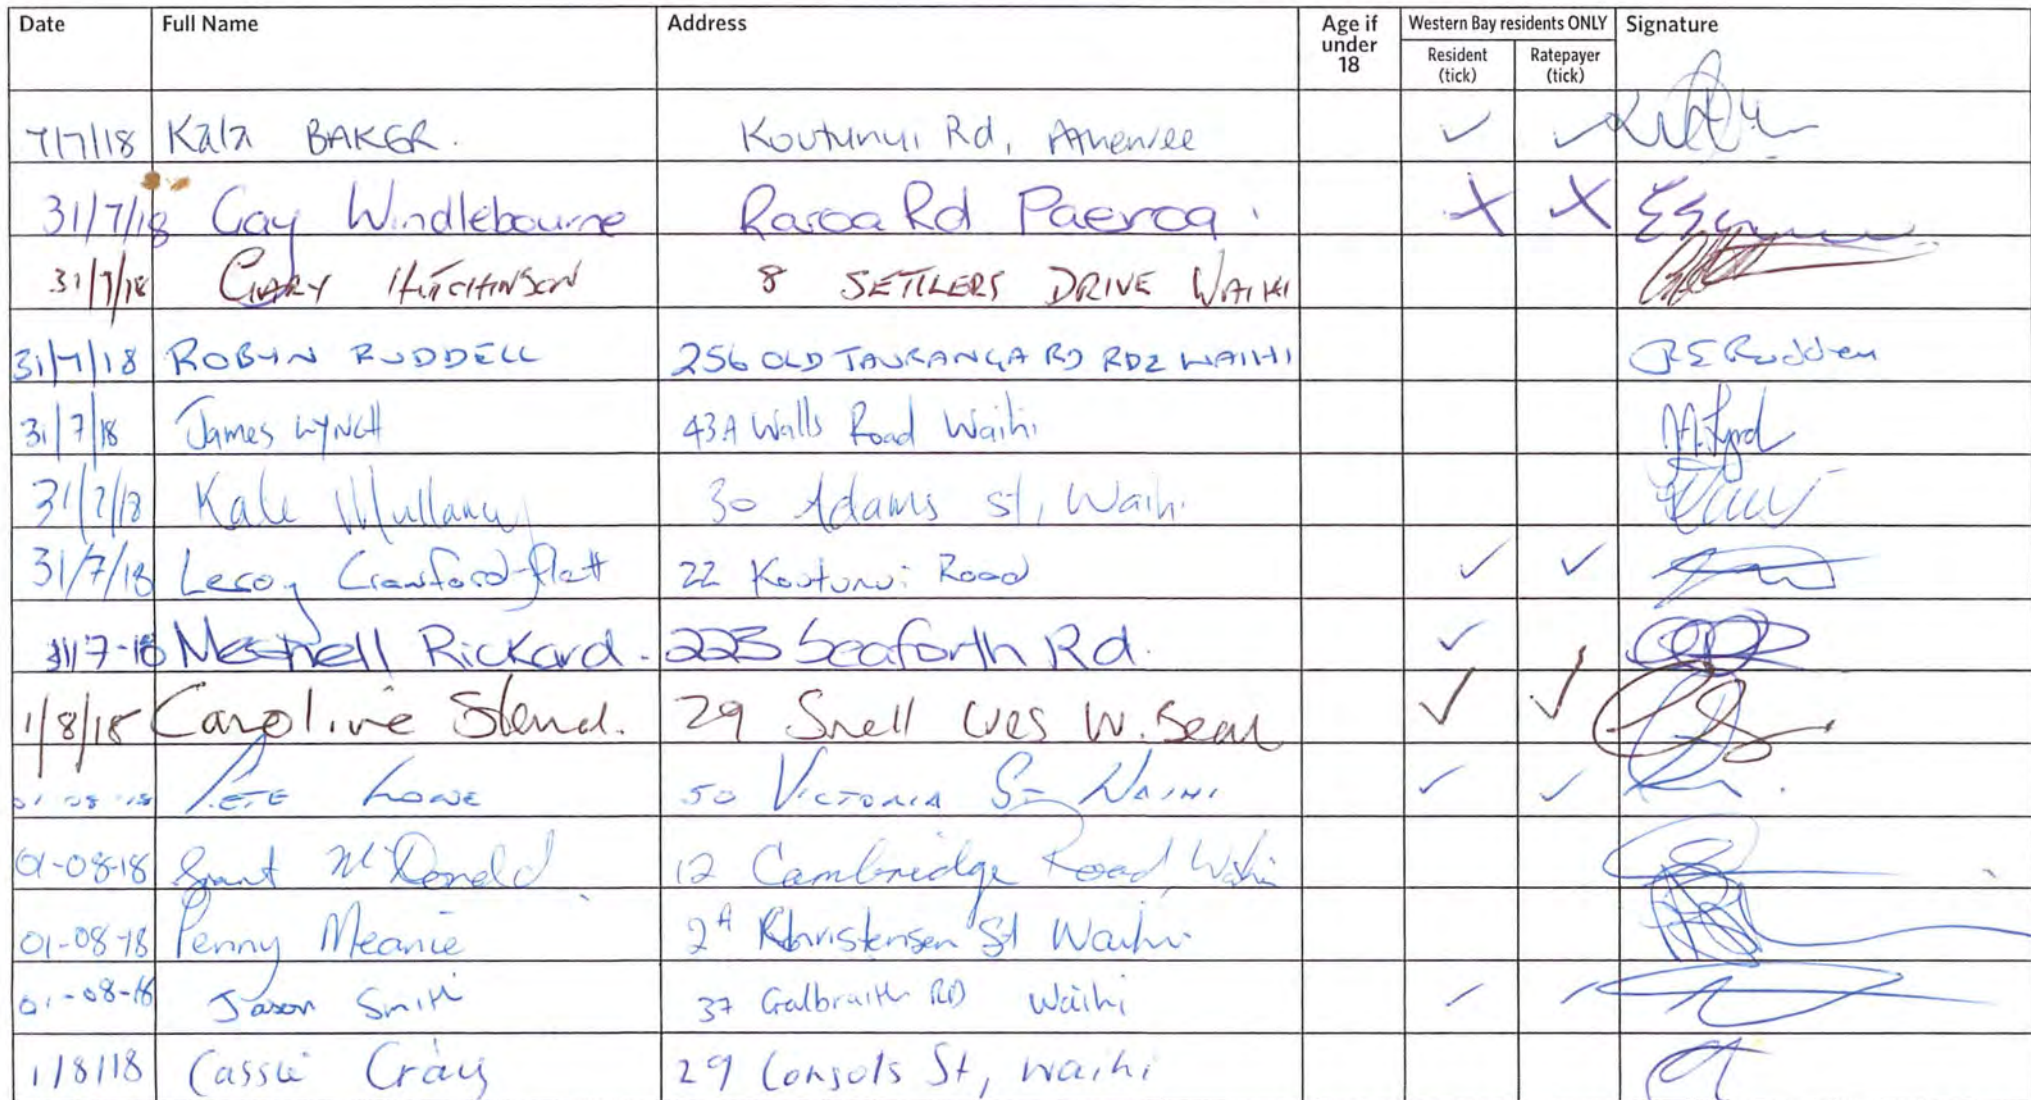 Date Full Name Address Age if under 18 Western Bay residents ONLY Resident (tick) Ratepayer (tick) Signature
7/7/18 Kala BAKER. Koutunui Rd, Athenree ✓ ✓
31/7/18 Gay Windlebourne Raroa Rd Paeroa. X X
31/7/18 GARY HUTCHINSON 8 SETTLERS DRIVE WAIHI
31/7/18 ROBYN RUDDELL 256 OLD TAURANGA RD RD2 WAIHI
31/7/18 James LYNCH 43A Walls Road Waihi
31/7/18 Mullany 30 Adams st, Waihi
31/7/18 Leroy Crawford-flatt 22 Koutunui Road ✓ ✓
31/7-18 Meshell Rickard. 223 Seaforth Rd. ✓
1/8/18 Caroline 29 Snell Cres W. ✓ ✓
01-08-18 PETE LOWE 50 VICTORIA ST WAIHI ✓ ✓
01-08-18 Grant McDonald 12 Cambridge Road, Waihi
01-08-18 Penny Meanie 2A Christensen St Waihi
01-08-18 Jason Smith 37 Galbraith RD Waihi ✓ ✓
1/8/18 Cassie Craig 29 Consols St, waihi